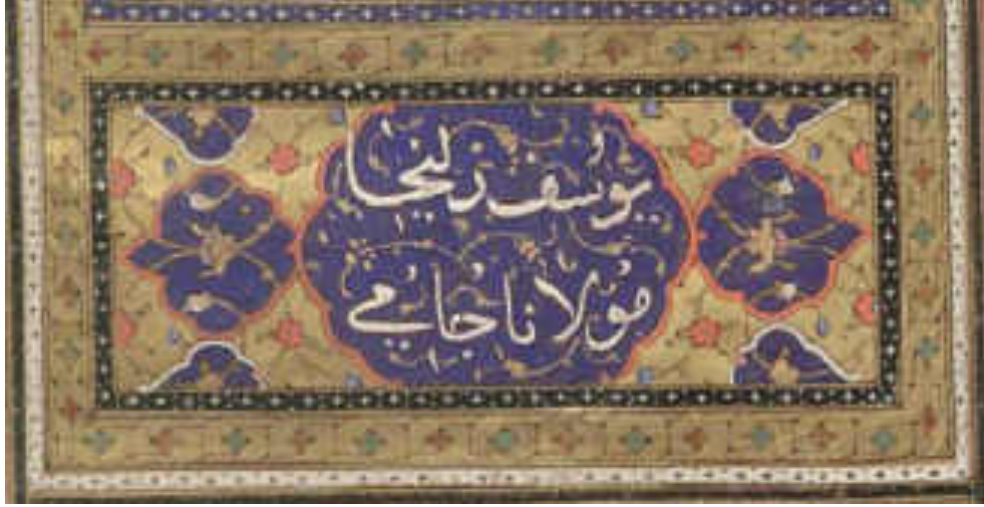 یوسف زلیخا
مولانا جامی